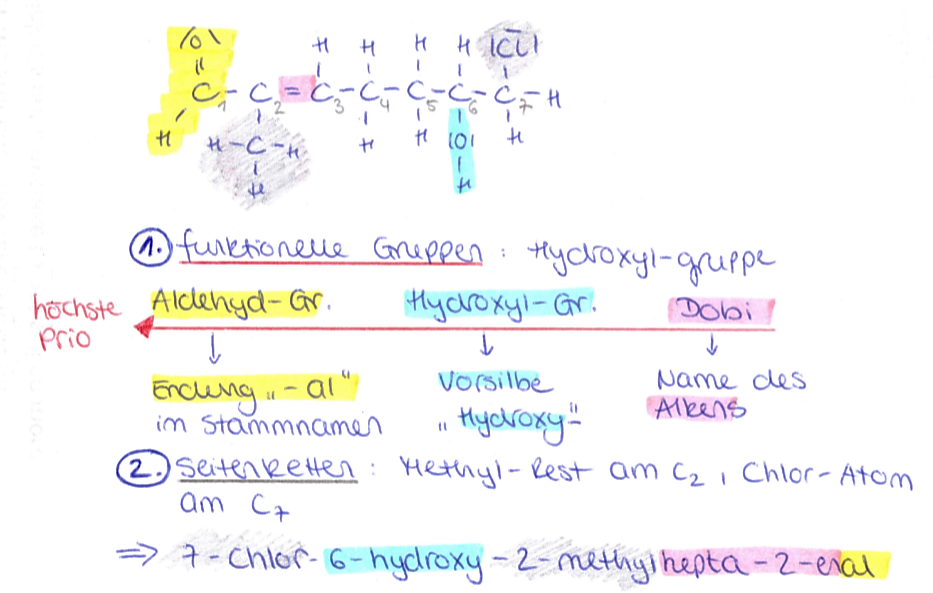 /O\ H H H H |Cl|
||
C1 - C2 = C3 - C4 - C5 - C6 - C7 - H
H H - C - H H H |O| H
H H
1. funktionelle Gruppen : Hydroxyl-gruppe
höchste Prio Aldehyd-Gr. Hydroxyl-Gr. Dobi
↓ ↓ ↓
Endung "-al" Vorsilbe Name des
im Stammnamen "Hydroxy-" Alkens
2. Seitenketten : Methyl-Rest am C2 , Chlor-Atom
am C7
=> 7-Chlor-6-hydroxy-2-methylhepta-2-enal